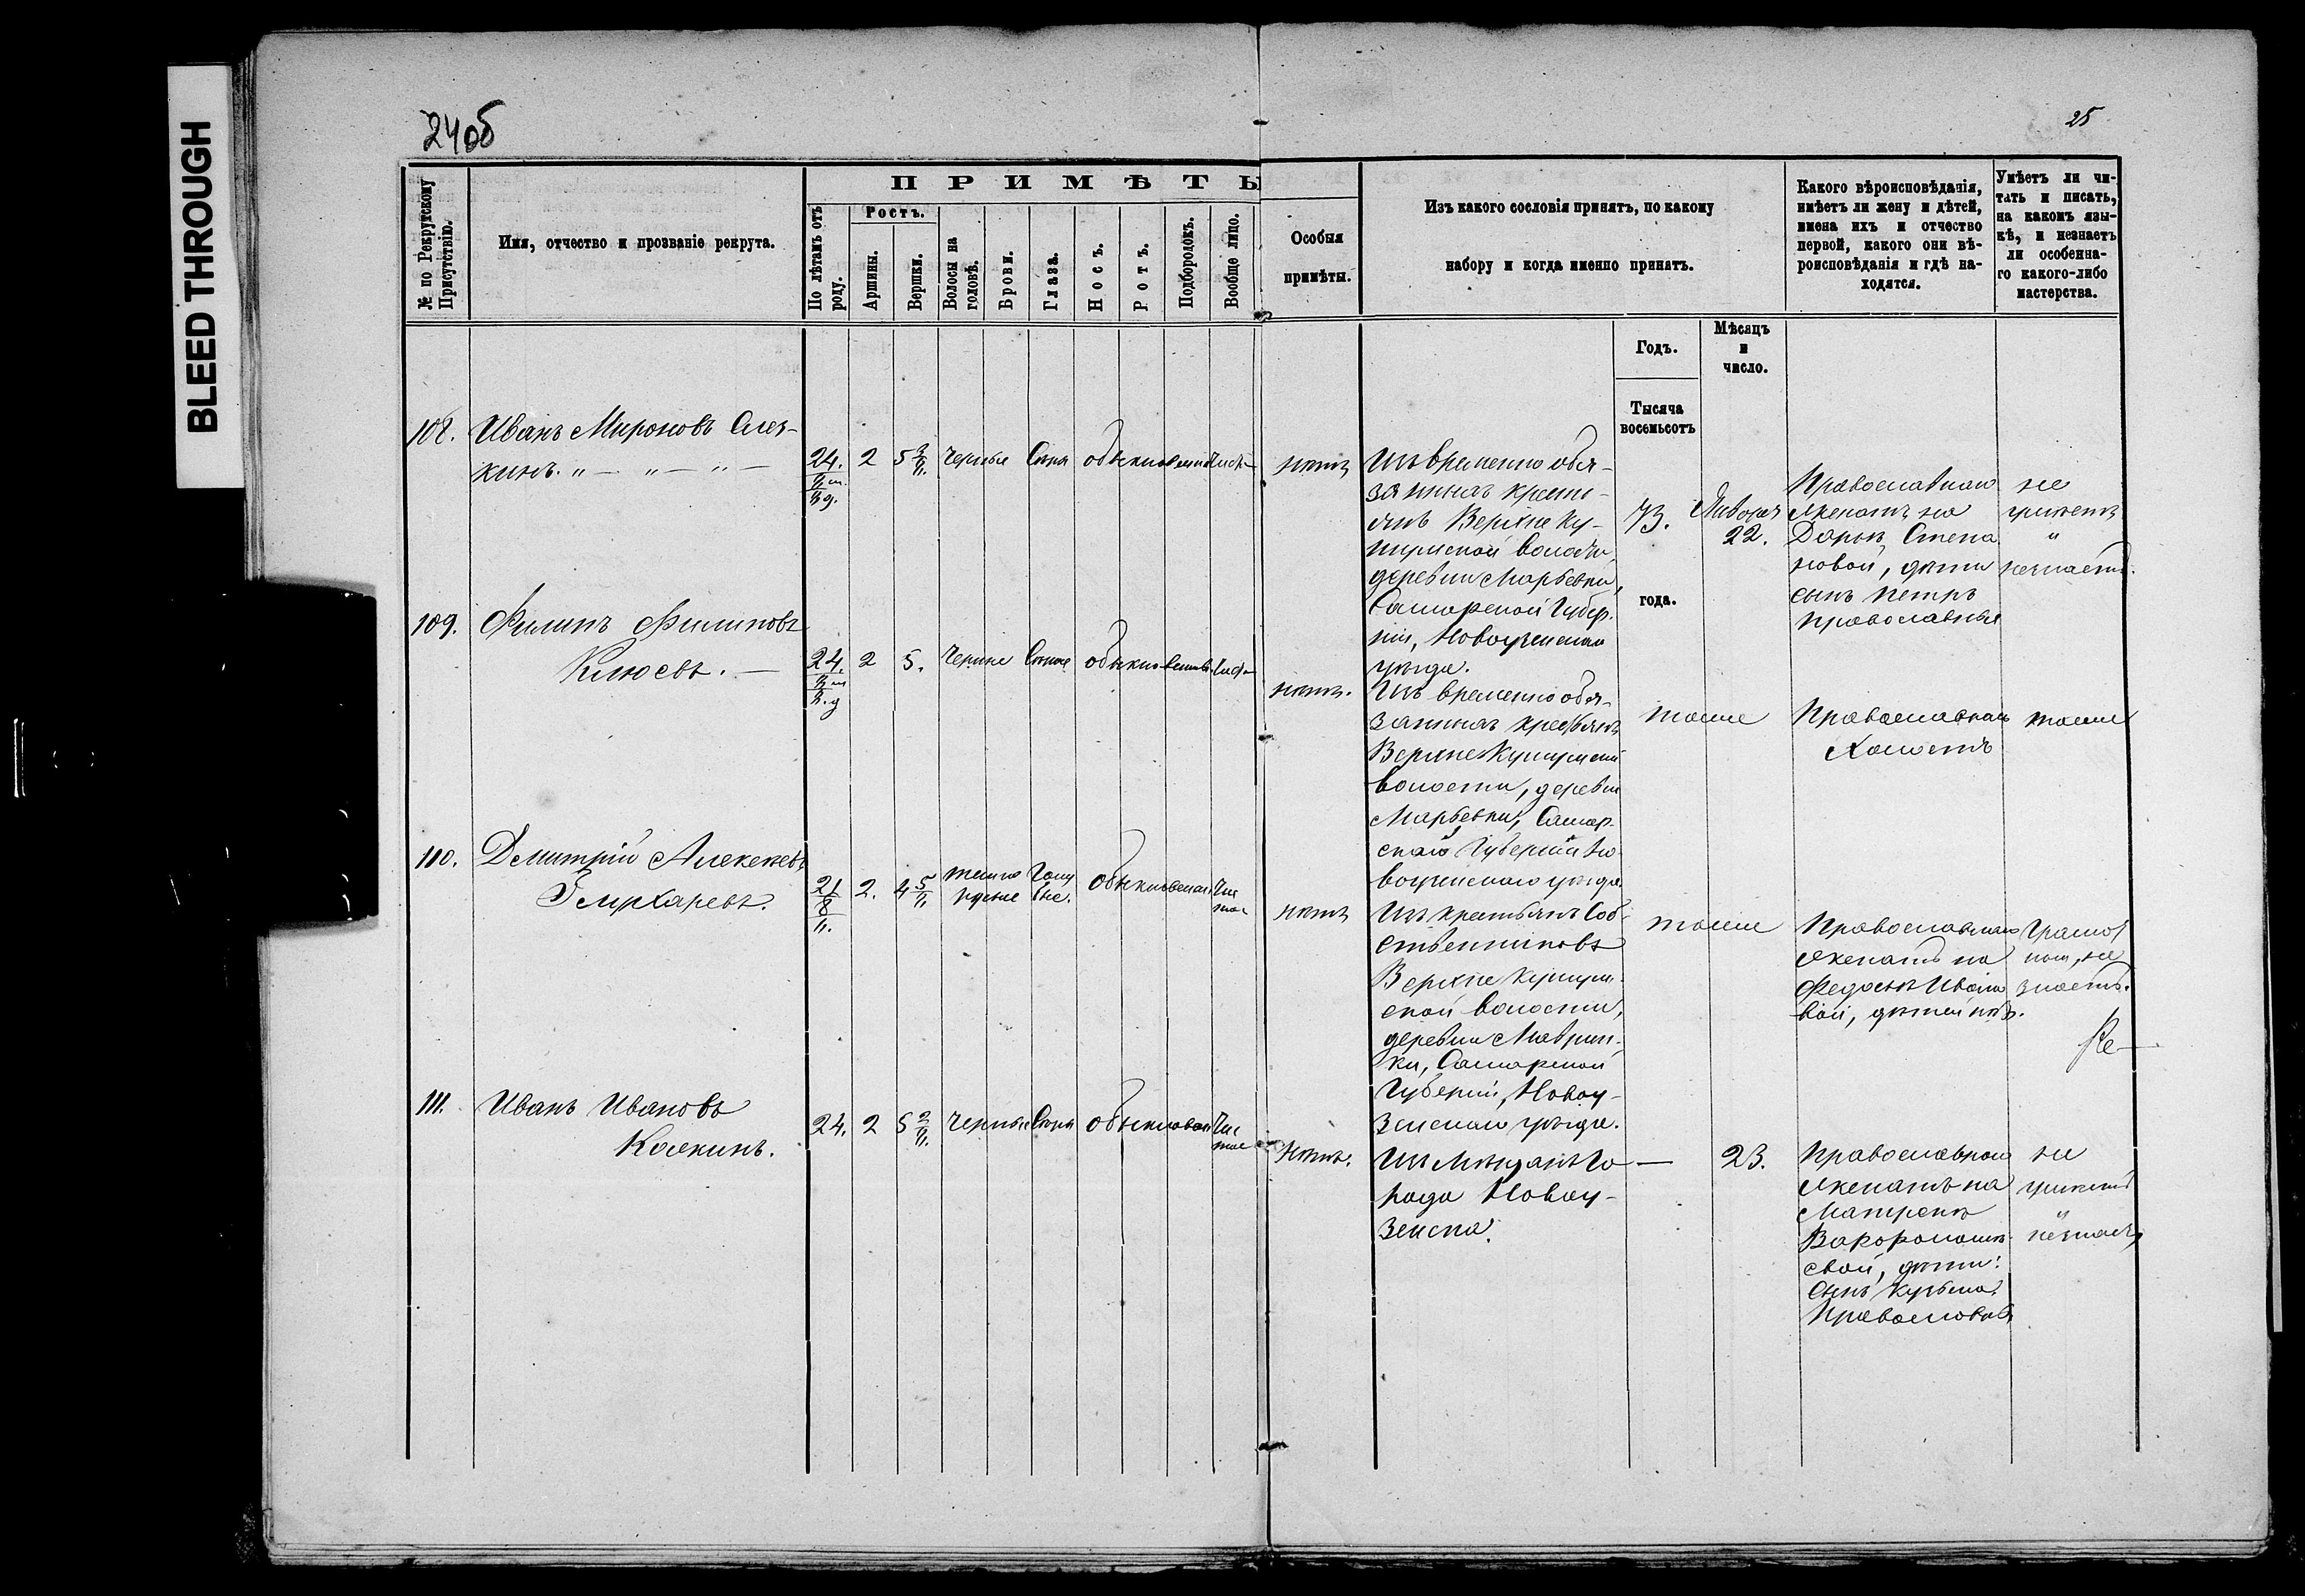 BLEED THROUGH
24об
25
№ по Рекрутскому Присутствію.
Имя, отчество и прозваніе рекрута.
ПРИМѢТЫ
По лѣтамъ отъ роду.
Ростъ.
Аршины.
Вершки.
Волосы на головѣ.
Брови.
Глаза.
Носъ.
Ротъ.
Подбородокъ.
Вообще лицо.
Особыя
примѣты.
Изъ какого сословія принятъ, по какому
набору и когда именно принятъ.
Какого вѣроисповѣданія,
имѣетъ ли жену и дѣтей,
имена ихъ и отчество
первой, какого они вѣ-
роисповѣданія и гдѣ на-
ходятся.
Умѣетъ ли чи-
тать и писать,
на какомъ язы-
кѣ, и незнаетъ
ли особенна-
го какого-либо
мастерства.
Годъ.
Мѣсяцъ
и
число.
Тысяча
восемьсотъ
года.
108. Иванъ Мироновъ
24. 2 5 2/8 черные обыкновенный
нѣтъ
Изъ временно обя-
занныхъ кресть-
янъ Верхне Ку-
шумской волости
деревни Марьевки,
Самарской Губер-
ніи, Новоузенскаго
уѣзда.
73. Января
22.
Православнаго
женатъ на
Дарьѣ Степа
новой, дѣти
сынъ Петръ
православный
не
умѣетъ
"
незнаетъ.
109. Филипъ Филиповъ
Клюевъ.
24. 2 5. черные обыкновенный
нѣтъ.
Изъ временно обя-
занныхъ крестьянъ
Верхне Кушумской
волости, деревни
Марьевки, Самар-
ской Губерніи Но-
воузенскаго уѣзда.
тоже
Православнаго
Холостъ
тоже
110. Дмитрій Алексеевъ
21 2. 4 темно Голу
русые бые. обыкновенный Чис
тое
нѣтъ
Изъ крестьянъ Соб-
ственниковъ
Верхне Кушум-
ской волости,
деревни Маврин-
ки, Самарской
Губерніи, Новоу-
зенскаго уѣзда.
тоже
Православнаго
женатъ на
Федосьѣ Ивано
вой, дѣтей нѣтъ.
Грамот
ный, не
знаетъ.
111. Иванъ Ивановъ
24. 2 5 черные обыкновен Чис
тое
нѣтъ.
Изъ Мѣщанъ Го-
рода Новоу-
зенска.
23.
Православнаго
женатъ на
Матренѣ
дѣти:
сынъ Кузьма,
Православный
не
умѣетъ
"
незнаетъ